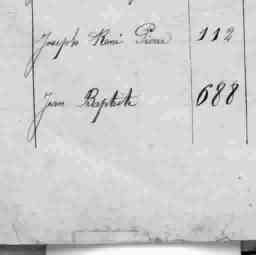 Joseph René Pierre 112
Jean Baptiste 688